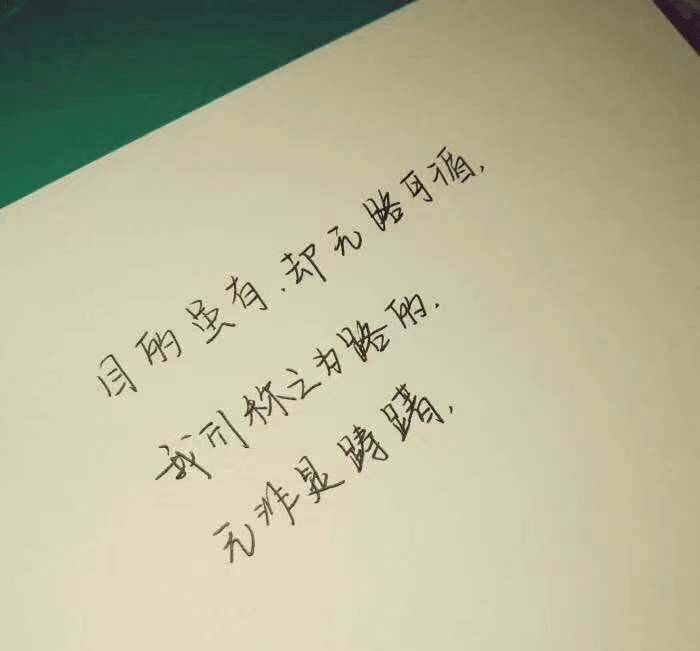 目的虽有.却无路可循.
我们称之为路的.
无非是踌躇.